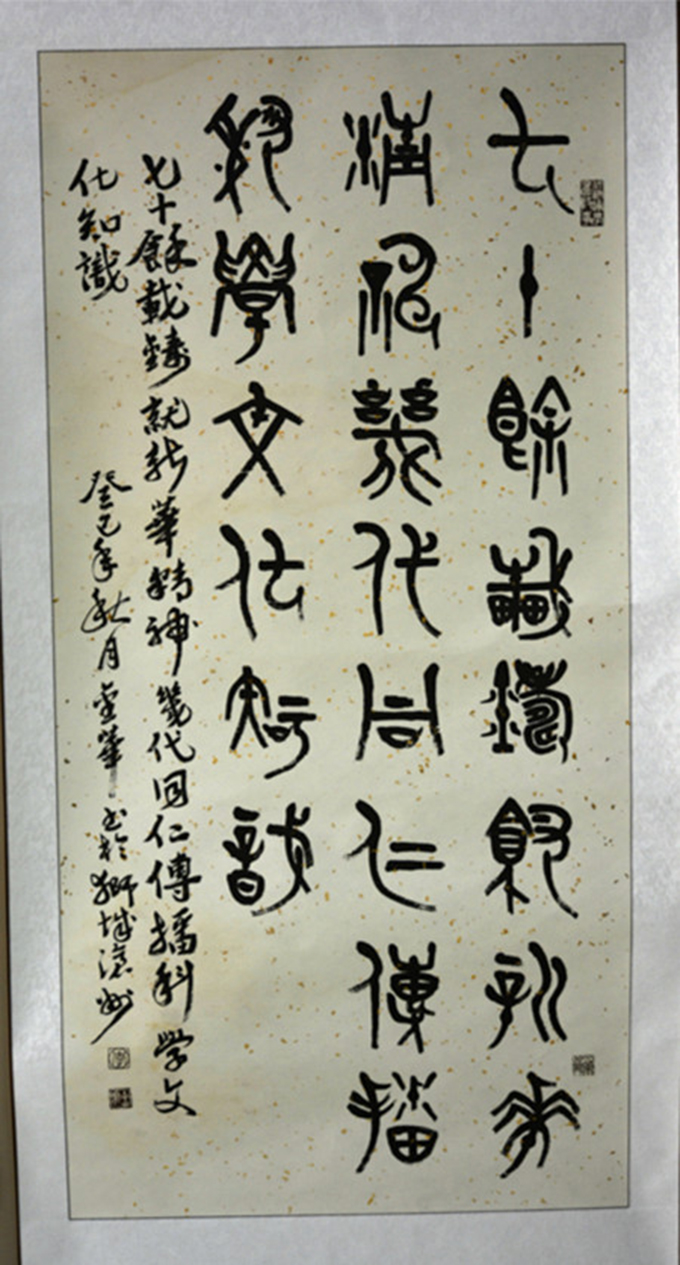 七十餘載鑄就新華
精神幾代同仁傳播
科學文化知識
七十餘載鑄就新華精神幾代同仁傳播科學文
化知識
癸巳年秋月 書於獅城滄州